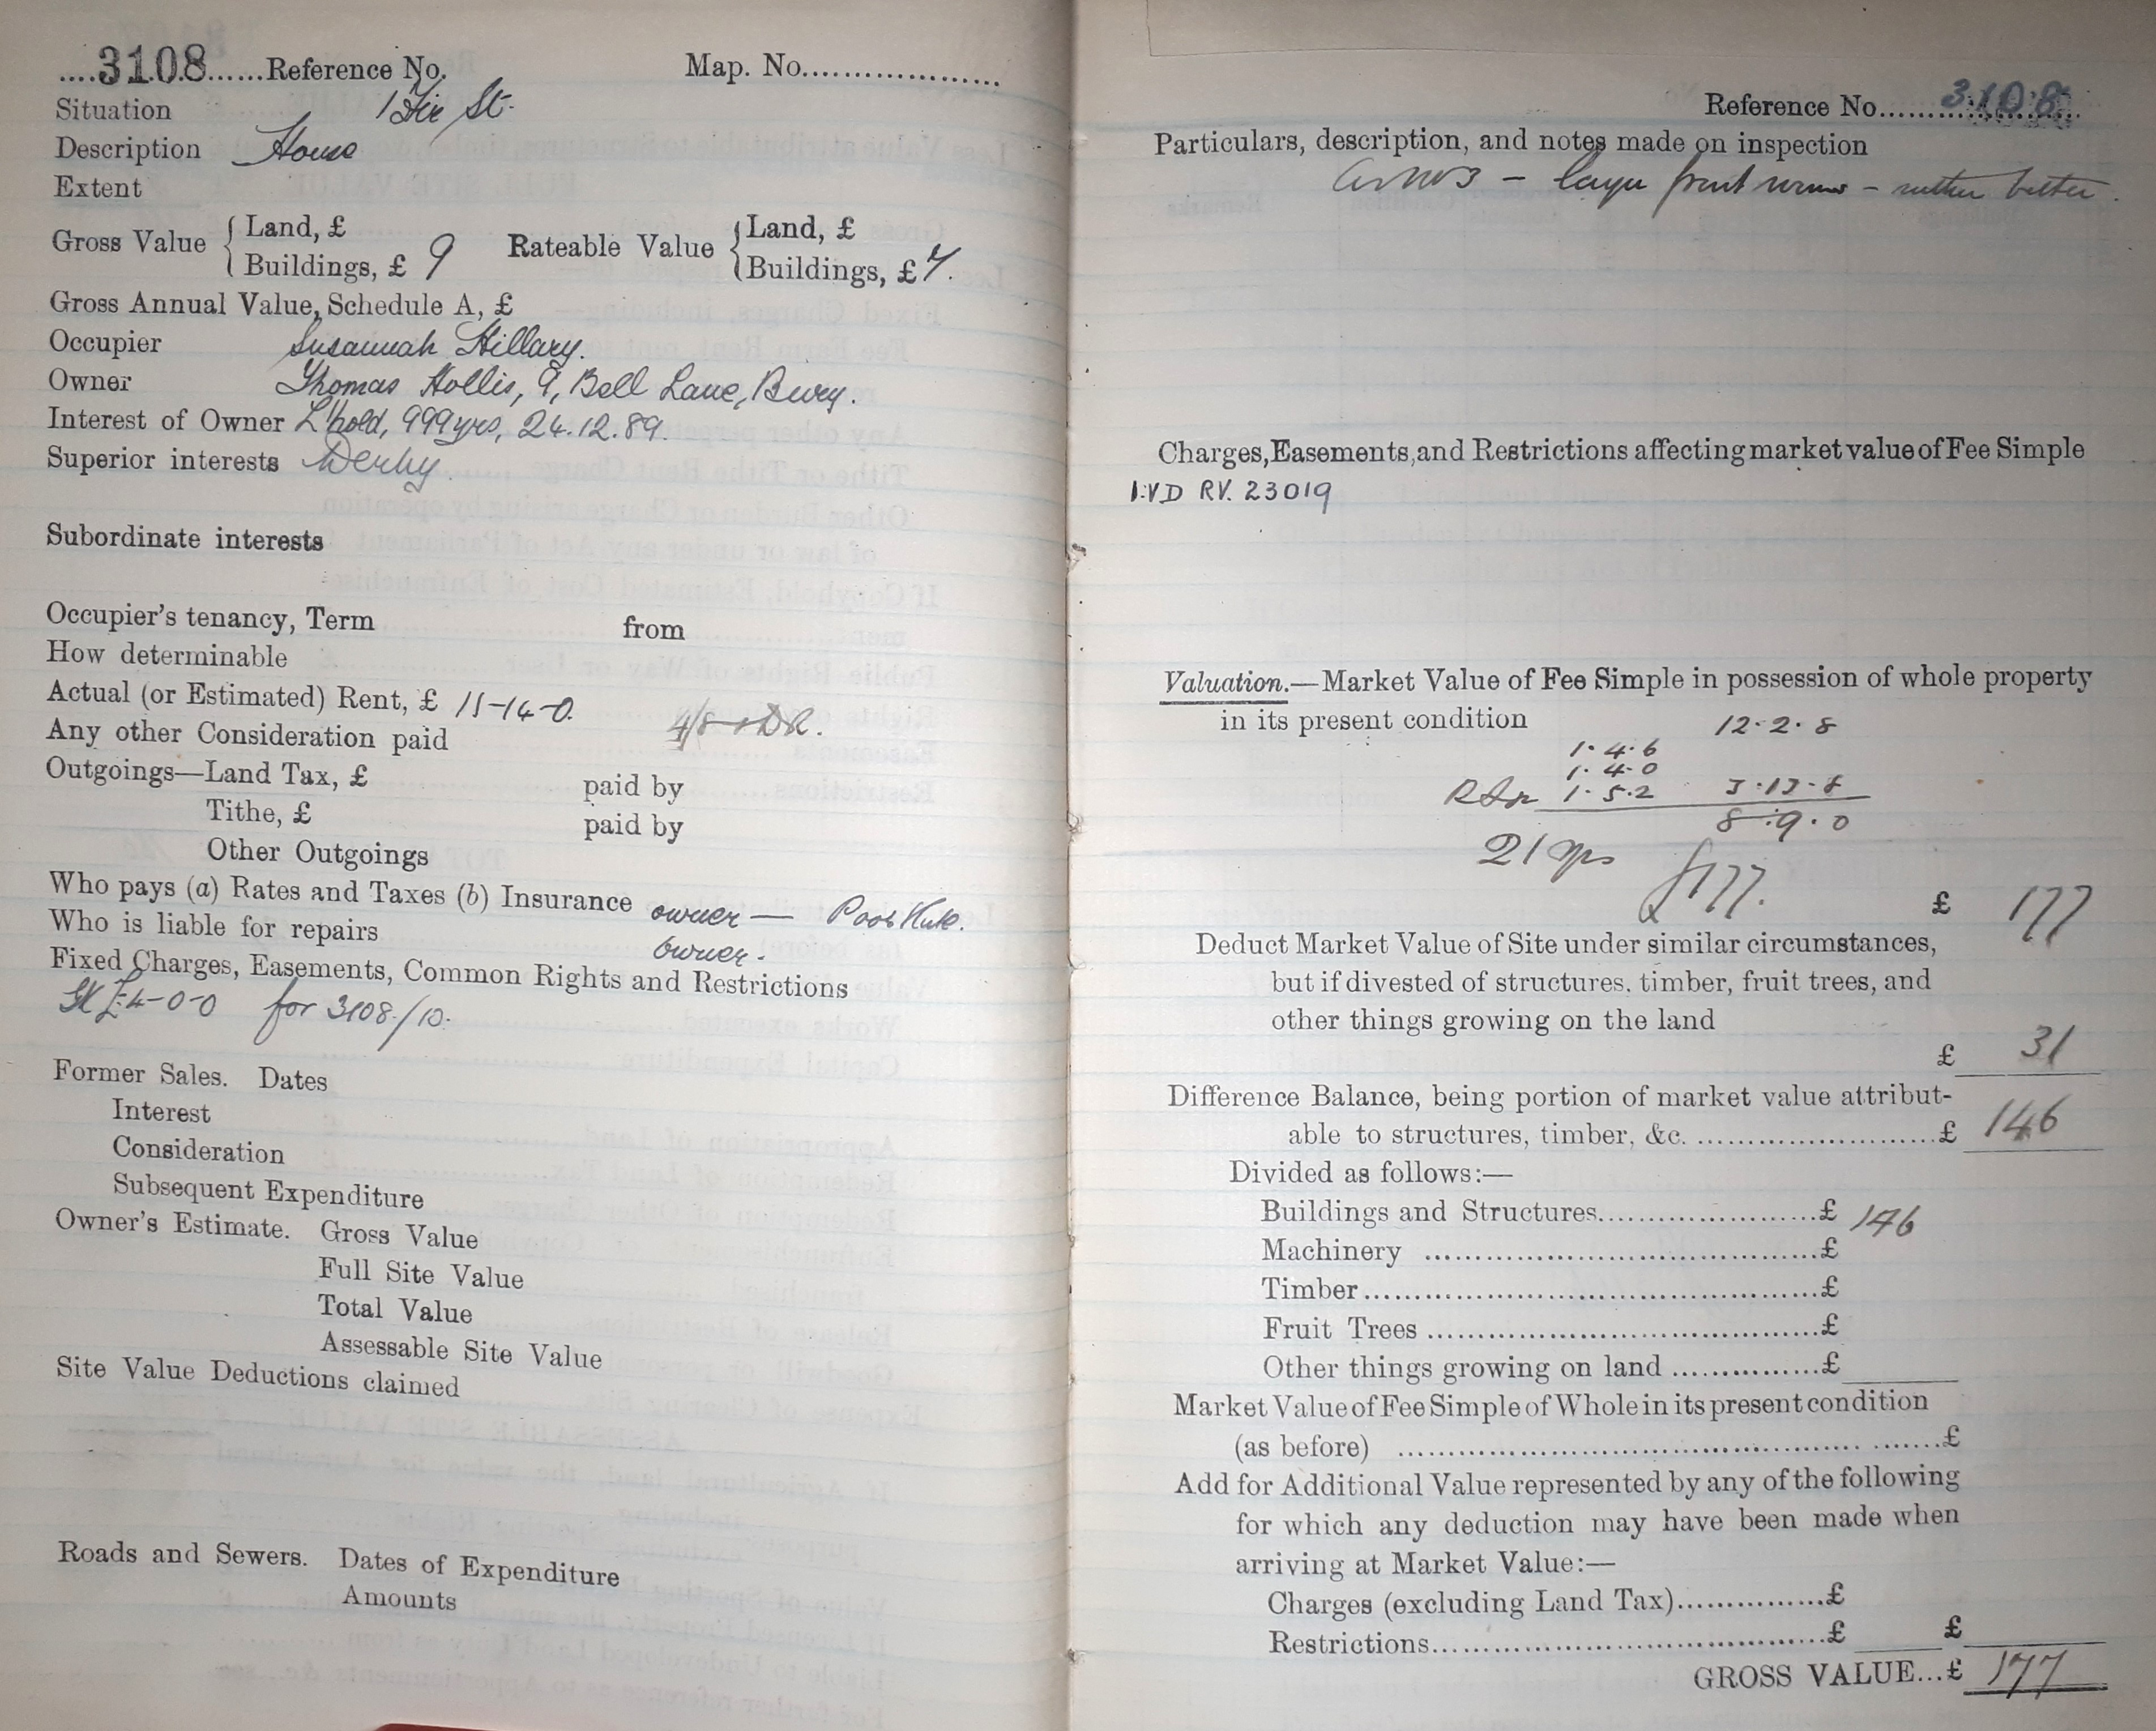 ....3108......Reference No.
Map. No......................
Situation 1 Fir St.
Description House
Extent
Gross Value { Land, £
Buildings, £ 9
Rateable Value { Land, £
Buildings, £ 7.
Gross Annual Value, Schedule A, £
Occupier Susannah Hillary.
Owner Thomas Hollis, 9, Bell Lane, Bury.
Interest of Owner L'hold, 999 yrs, 24.12.89.
Superior interests Derby
Subordinate interests
Occupier's tenancy, Term from
How determinable
Actual (or Estimated) Rent, £ 11-14-0.
Any other Consideration paid 4/8
Outgoings—Land Tax, £ paid by
Tithe, £ paid by
Other Outgoings
Who pays (a) Rates and Taxes (b) Insurance owner — Poor
Who is liable for repairs owner.
Fixed Charges, Easements, Common Rights and Restrictions
£4-0-0 for 3108/10.
Former Sales. Dates
Interest
Consideration
Subsequent Expenditure
Owner's Estimate. Gross Value
Full Site Value
Total Value
Assessable Site Value
Site Value Deductions claimed
Roads and Sewers. Dates of Expenditure
Amounts
Reference No......3108
Particulars, description, and notes made on inspection
– larger front rooms – rather better.
Charges, Easements, and Restrictions affecting market value of Fee Simple
I.VD RV. 23019
Valuation.—Market Value of Fee Simple in possession of whole property
in its present condition 12.2.8
1.4.6
1.4.0
1.5.2 3.13.8
8.9.0
21 yrs £177.
£ 177
Deduct Market Value of Site under similar circumstances,
but if divested of structures, timber, fruit trees, and
other things growing on the land
£ 31
Difference Balance, being portion of market value attribut-
able to structures, timber, &c. ..........................£ 146
Divided as follows:—
Buildings and Structures........................£ 146
Machinery ..........................................£
Timber................................................£
Fruit Trees ..........................................£
Other things growing on land ................£
Market Value of Fee Simple of Whole in its present condition
(as before) ......................................................£
Add for Additional Value represented by any of the following
for which any deduction may have been made when
arriving at Market Value:—
Charges (excluding Land Tax)...............£
Restrictions..........................................£ £
GROSS VALUE...£ 177